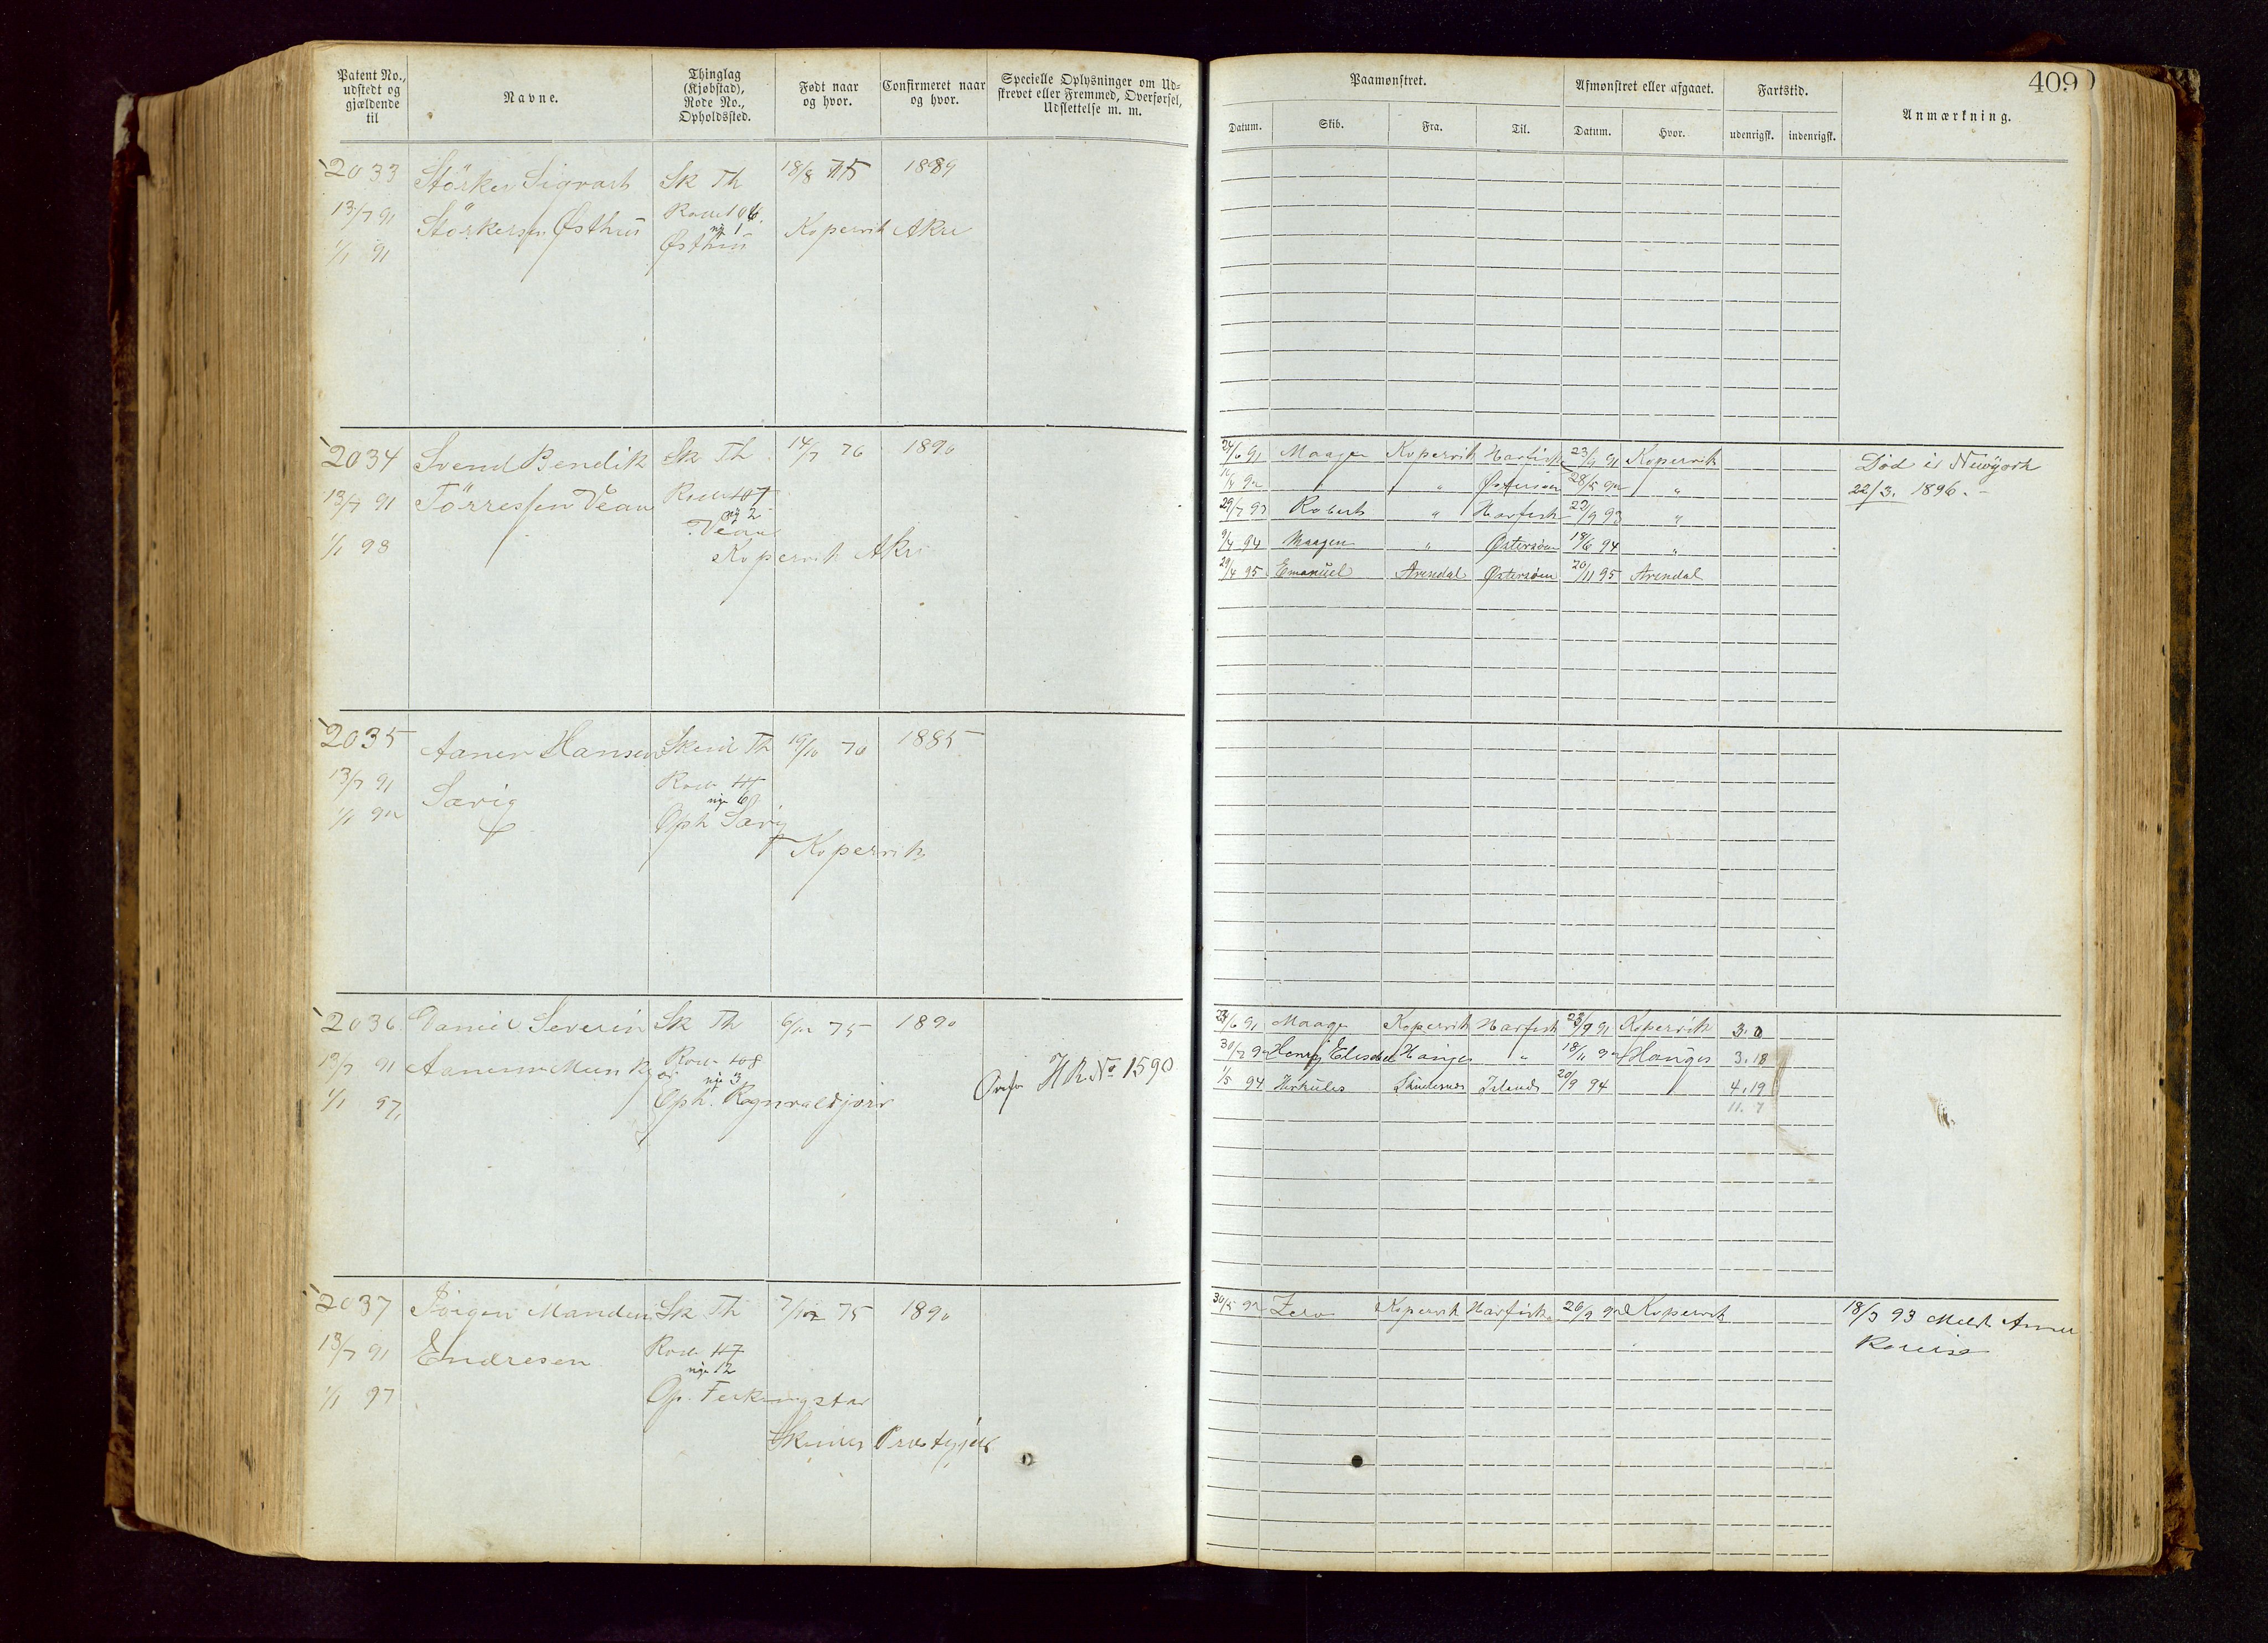 Patent No., udstedt og gjældende til
Navne.
Thinglag (Kjøbstad), Rode No., Opholdssted.
Født naar og hvor.
Confirmeret naar og hvor.
Specielle Oplysninger om Udskrevet eller Fremmed, Overførsel, Udslettelse m. m.
Paamønstret.
Afmønstret eller afgaaet.
Fartstid.
Anmærkning.
409
Datum. Skib. Fra. Til. Datum. Hvor. udenrigsk. indenrigsk.
2033 Störker Sigvart Sk Th 18/8 75 1889
13/7 91 Störkersen Østhus Rode 106.
ny 1
1/1 91 Østhus Kopervik Akre
2034 Svend Bendik Sk Th 14/7 76 1890
13/7 91 Törressen Vean Rode 107
ny 2
Vean
1/1 98 Kopervik Akre
24/6 91 Maagen Kopervik Havfisk 23/9 91 Kopervik
92 " " Østersøen 28/5 92 "
29/7 93 Robert " Havfisk 22/9 93 "
9/4 94 Maagen " Østersøen 18/6 94 "
29/4 95 Emanuel Arendal Østersøen 20/11 95 Arendal
Død i Newÿork
22/3. 1896.
2035 Aaner Hansen Skud Th 19/10 70 1885
13/7 91 Sævig Rode 117
nye 6
1/1 92 Oph Sævig
Kopervik
2036 Daniel Severin Sk Th 6/12 75 1890
13/7 91 Aanensen Munk Rode 108
nye 3
1/1 97, Oph. Rognvaldsjord
Ovf HR No 1590
23/6 91 Maage Kopervik Havfisk 23/9 91 Kopervik 3.0
30/7 92 Henry Elisabet Hauges " 18/11 92 Hauges 3.18
1/5 94 Herkules Skudesnes Island 20/9 94 4.19
11.7
2037 Jörgen Mandus Sk Th 7/12 75 1890
13/7 91 Endresen Rode 117
nye 12
1/1 97 Op. Ferkingstad
Skudes Prestegjeld
30/5 92 Zero Kopervik Havfisk 26/9 92 Kopervik
18/3 93 Meldt Anna